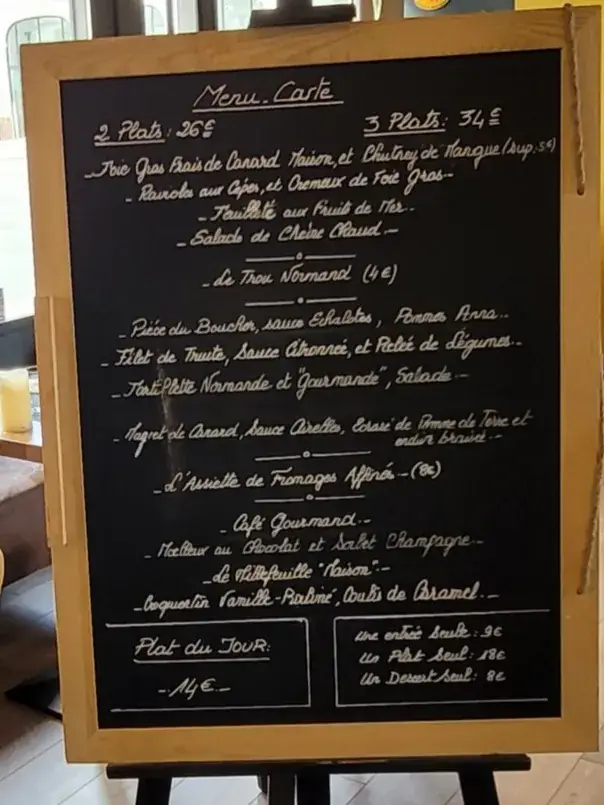 Menu - Carte
2 Plats : 26€
3 Plats : 34€
- Foie Gras Frais de Canard Maison, et Chutney de Mangue (sup: 5€)
- Ravioles aux Cèpes, et Crémeux de Foie Gras -
- Feuilleté aux Fruits de Mer -
- Salade de Chèvre Chaud -
- Le Trou Normand (4€)
- Pièce du Boucher, sauce Echalotes, Pommes Anna -
- Filet de Truite, Sauce Citronnée, et Poêlée de Légumes -
- Tartiflette Normande et "Gourmande", Salade -
- Magret de Canard, Sauce Airelles, Ecrasé de Pomme de Terre et
endive braisée -
- L'Assiette de Fromages Affinés - (8€)
- Café Gourmand -
- Moelleux au Chocolat et Sorbet Champagne -
- Le Millefeuille "Maison" -
- Coquertin Vanille-Praliné, Coulis de Caramel -
Plat du JOUR :
- 14€ -
Une entrée Seule : 9€
Un Plat Seul : 18€
Un Dessert Seul : 8€